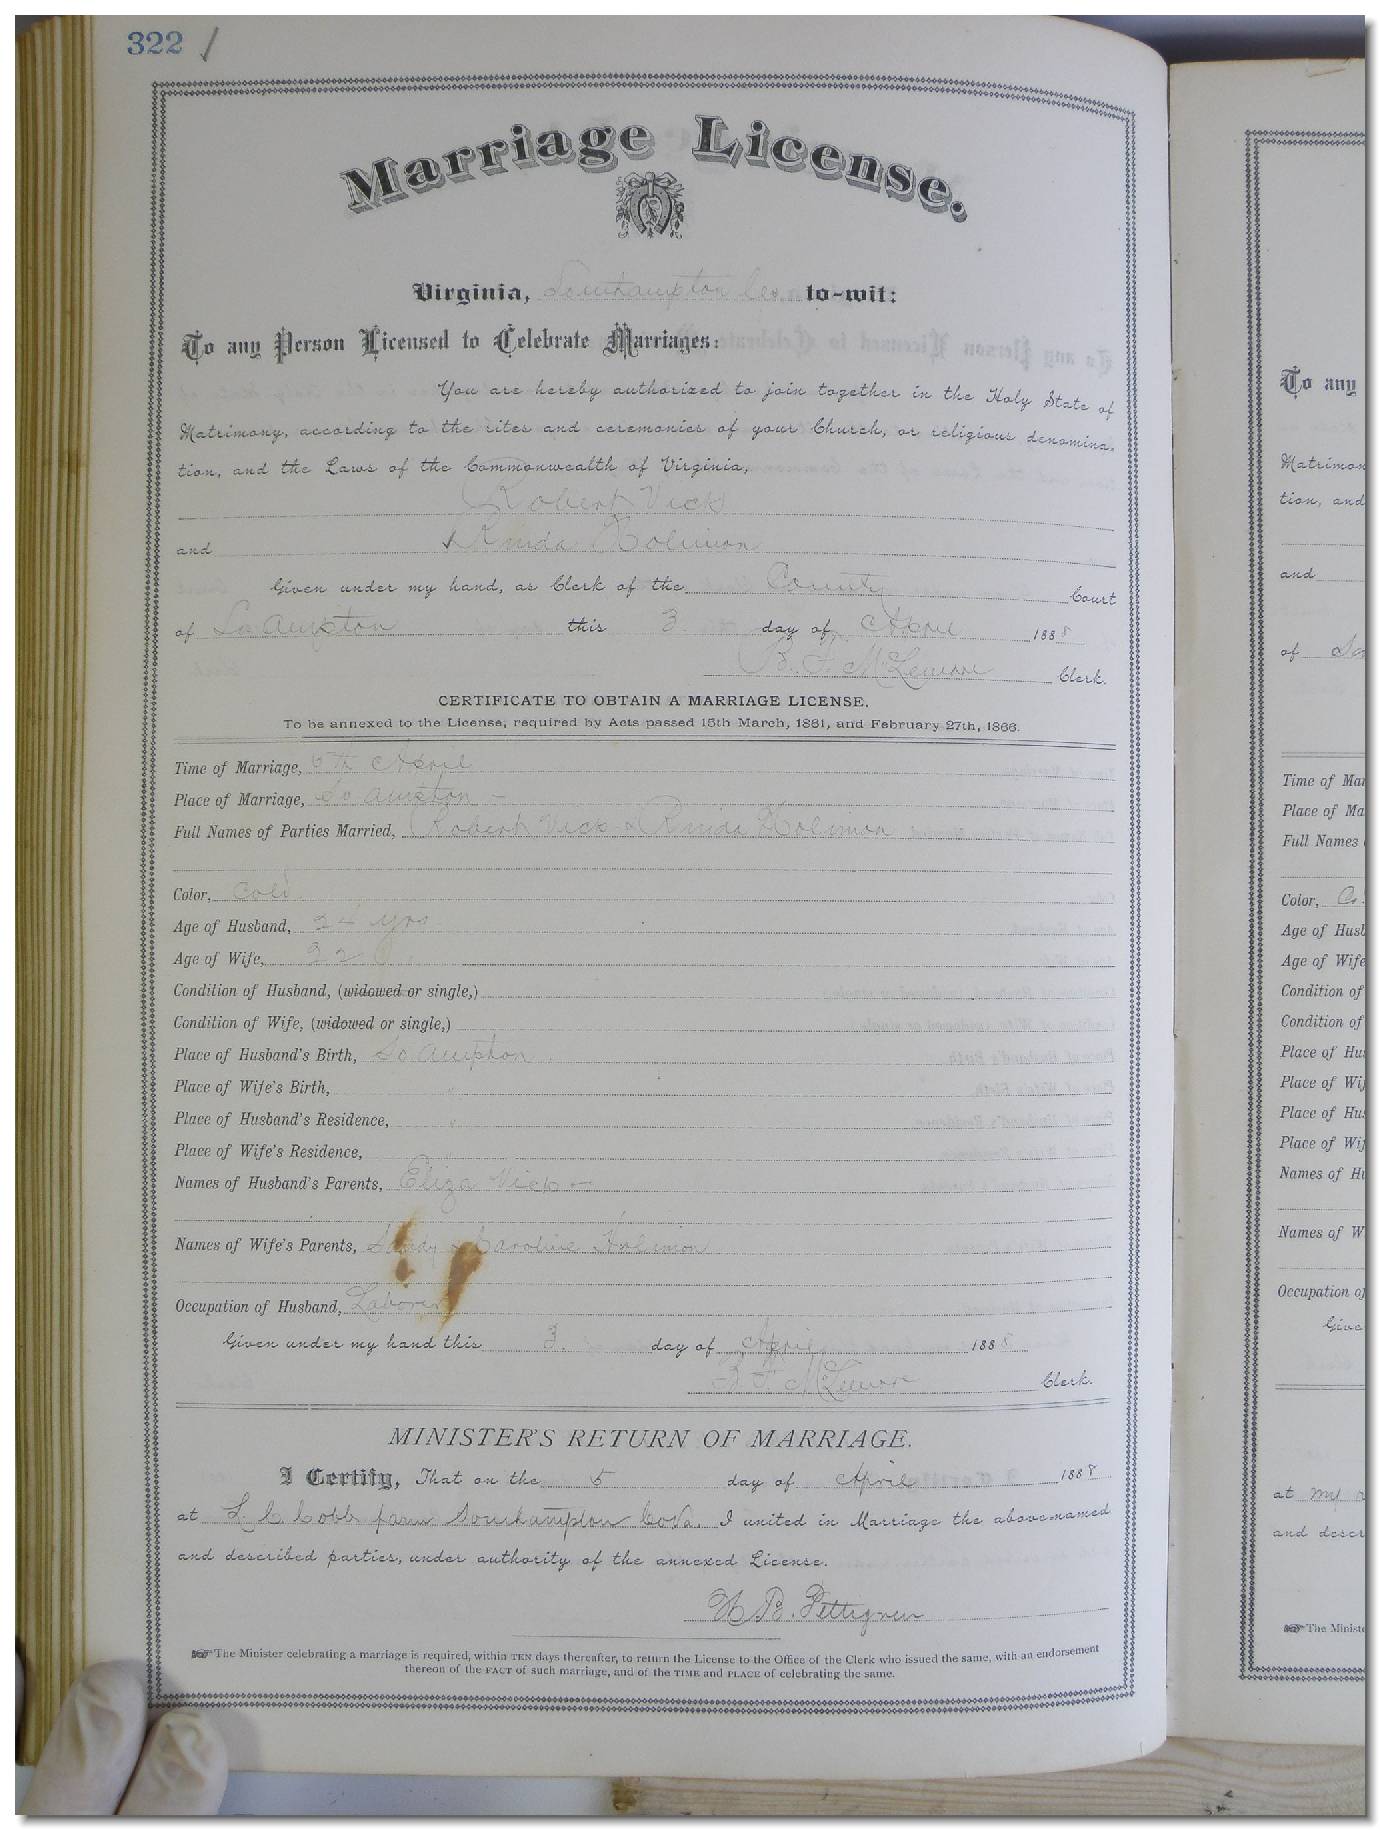 322
Marriage License.
Virginia, Southampton Co. to-wit:
To any Person Licensed to Celebrate Marriages:
You are hereby authorized to join together in the Holy State of
Matrimony, according to the rites and ceremonies of your Church, or religious denomina-
tion, and the Laws of the Commonwealth of Virginia,
Robert Vick
and & Rinda Holimon
Given under my hand, as Clerk of the County Court
of So ampton this 3 day of April 1888
B. F. McLemore Clerk.
CERTIFICATE TO OBTAIN A MARRIAGE LICENSE,
To be annexed to the License, required by Acts passed 15th March, 1861, and February 27th, 1866.
Time of Marriage, 5th April
Place of Marriage, So ampton -
Full Names of Parties Married, Robert Vick & Rinda Holimon
Color, Cold
Age of Husband, 24 yrs
Age of Wife, 22 " "
Condition of Husband, (widowed or single,)
Condition of Wife, (widowed or single,)
Place of Husband's Birth, So ampton
Place of Wife's Birth, "
Place of Husband's Residence, "
Place of Wife's Residence, "
Names of Husband's Parents, Eliza Vick -
Names of Wife's Parents, Sandy & Caroline Holimon
Occupation of Husband, Laborer
Given under my hand this 3. day of April 1888
B. F. McLemore Clerk.
MINISTER'S RETURN OF MARRIAGE.
I Certify, That on the 5 day of April 1888
at Cobb farm Southampton Co Va. I united in Marriage the above-named
and described parties, under authority of the annexed License.
B. Pettigrew
The Minister celebrating a marriage is required, within TEN days thereafter, to return the License to the Office of the Clerk who issued the same, with an endorsement
thereon of the FACT of such marriage, and of the TIME and PLACE of celebrating the same.
To any
Matrimon
tion, and
and
of So
Time of Mar
Place of Ma
Full Names
Color, Co
Age of Husb
Age of Wife
Condition of
Condition of
Place of Hu
Place of Wif
Place of Hus
Place of Wif
Names of Hu
Names of W
Occupation of
Give
at my
and descr
The Ministe